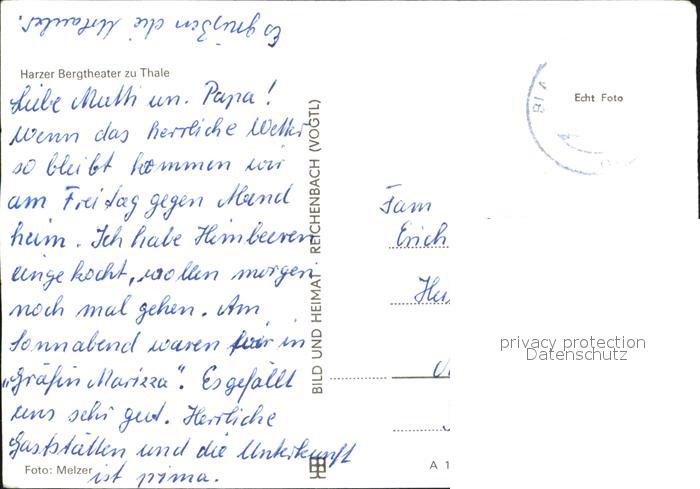 Es grüßen die Urlauber.
Harzer Bergtheater zu Thale
Liebe Mutti un. Papa!
Wenn das herrliche Wetter
so bleibt kommen wir
am Freitag gegen Abend
heim. Ich habe Himbeeren
eingekocht, wollen morgen
noch mal gehen. Am
Sonnabend waren wir in
"Gräfin Mariza". Es gefällt
uns sehr gut. Herrliche
Gaststätten und die Unterkunft
ist prima.
Foto: Melzer
BILD UND HEIMAT · REICHENBACH (VOGTL)
Echt Foto
Fam
Erich
A 1
privacy protection
Datenschutz